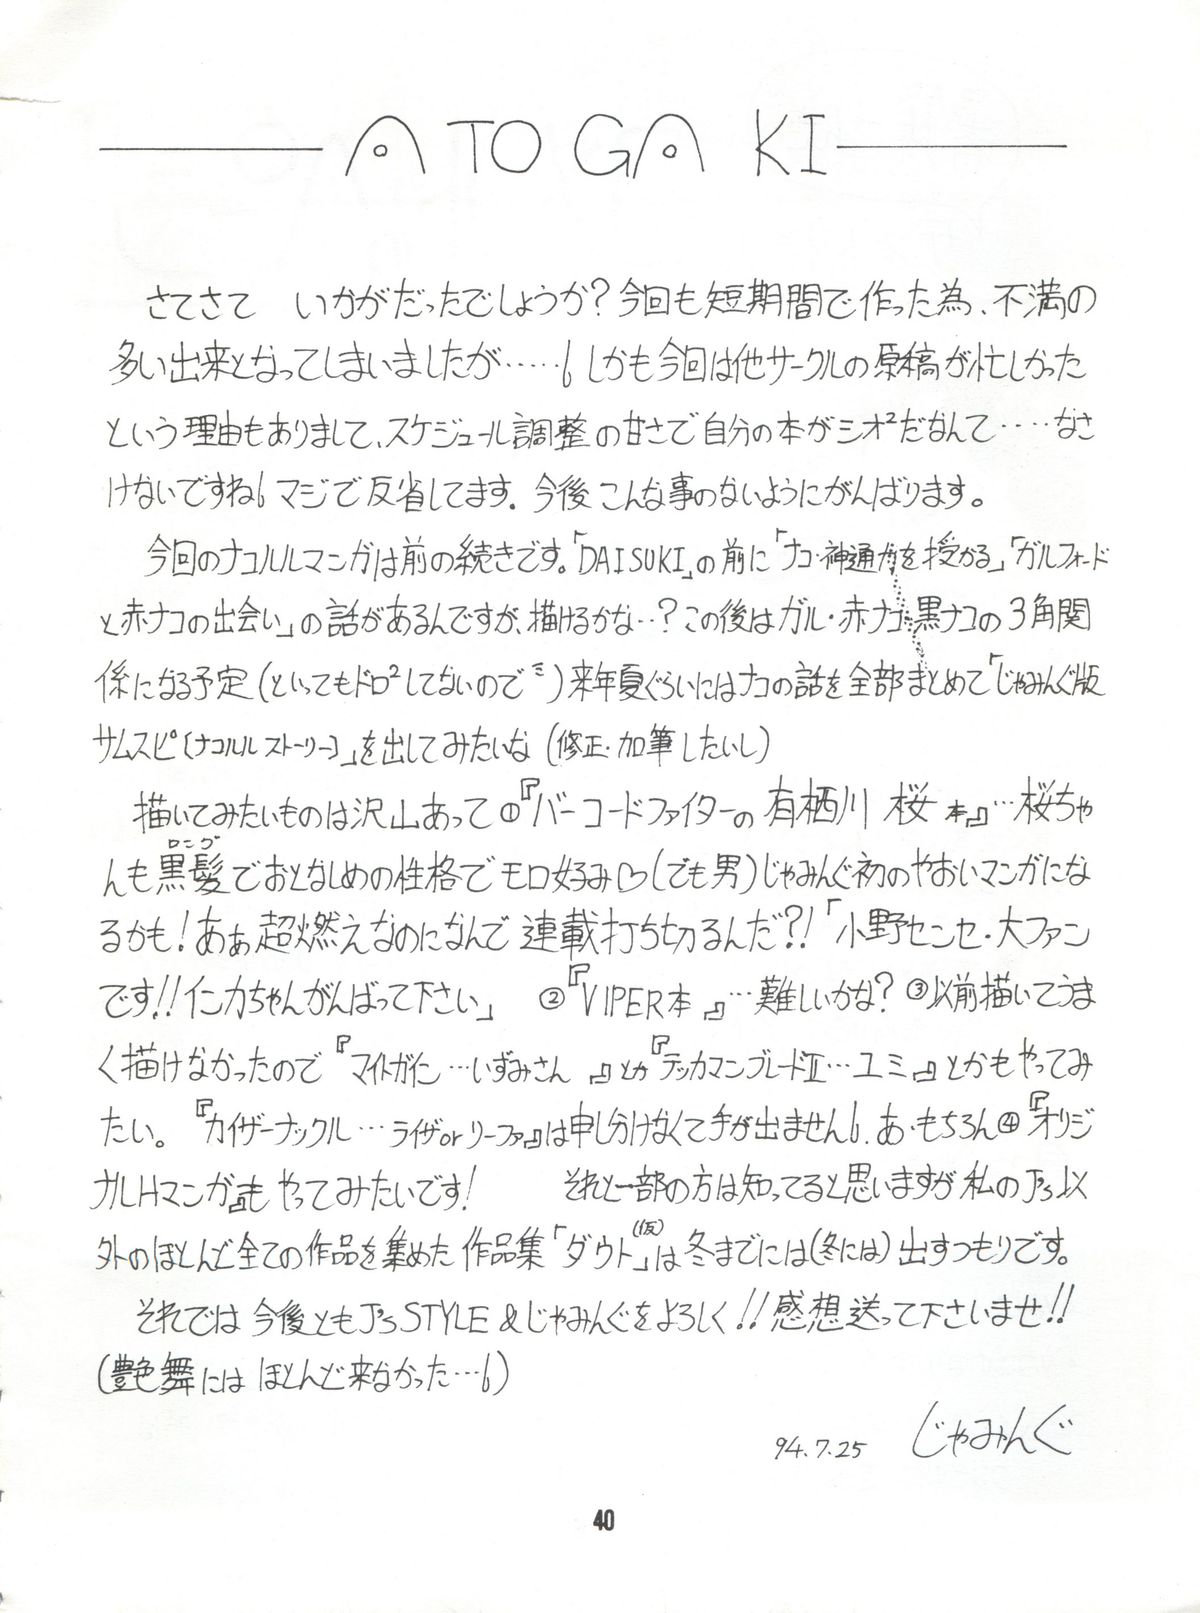 ATOGAKI
さてさて　いかがだったでしょうか?今回も短期間で作った為、不満の
多い出来となってしまいましたが……しかも今回は他サークルの原稿が忙しかった
という理由もありまして、スケジュール調整の甘さで自分の本がシオ²だなんて‥‥なさ
けないですね マジで反省してます.今後こんな事のないようにがんばります。
今回のナコルルマンガは前の続きです。「DAISUKI」の前に「ナコ・神通力を授かる」「ガルフォード
と赤ナコの出会い」の話があるんですが、描けるかな‥?この後はガル・赤ナコ・黒ナコの3角関
係になる予定(といってもドロ²してないのでミ)来年夏ぐらいにはナコの話を全部まとめて「じゃみんぐ版
サムスピ〔ナコルルストーリー〕」を出してみたいな(修正・加筆したいし)
描いてみたいものは沢山あって①『バーコードファイターの有栖川 桜 本』…桜ちゃ
ロング
んも黒髪でおとなしめの性格でモロ好み♡(でも男)じゃみんぐ初のやおいマンガにな
るかも!あぁ超燃えなのになんで連載打ち切るんだ?!「小野センセ・大ファン
です!!インカちゃんがんばって下さい」　②『VIPER本』…難しいかな?③以前描いてうま
く描けなかったので『マイトガイン…いずみさん』とか『テッカマンブレードⅡ…ユミ』とかもやってみ
たい。『カイザーナックル…ライザorリーファ』は申し分けなくて手が出ません.あ・もちろん④『オリジ
ナルHマンガ』もやってみたいです!　それと一部の方は知ってると思いますが私のJ's以
外のほとんど全ての作品を集めた作品集「ダウト(仮)」は冬までには(冬には)出すつもりです。
それでは今後ともJ's STYLE &じゃみんぐをよろしく!!感想送って下さいませ!!
(艶舞にはほとんど来なかった…)
94.7.25　じゃみんぐ
40